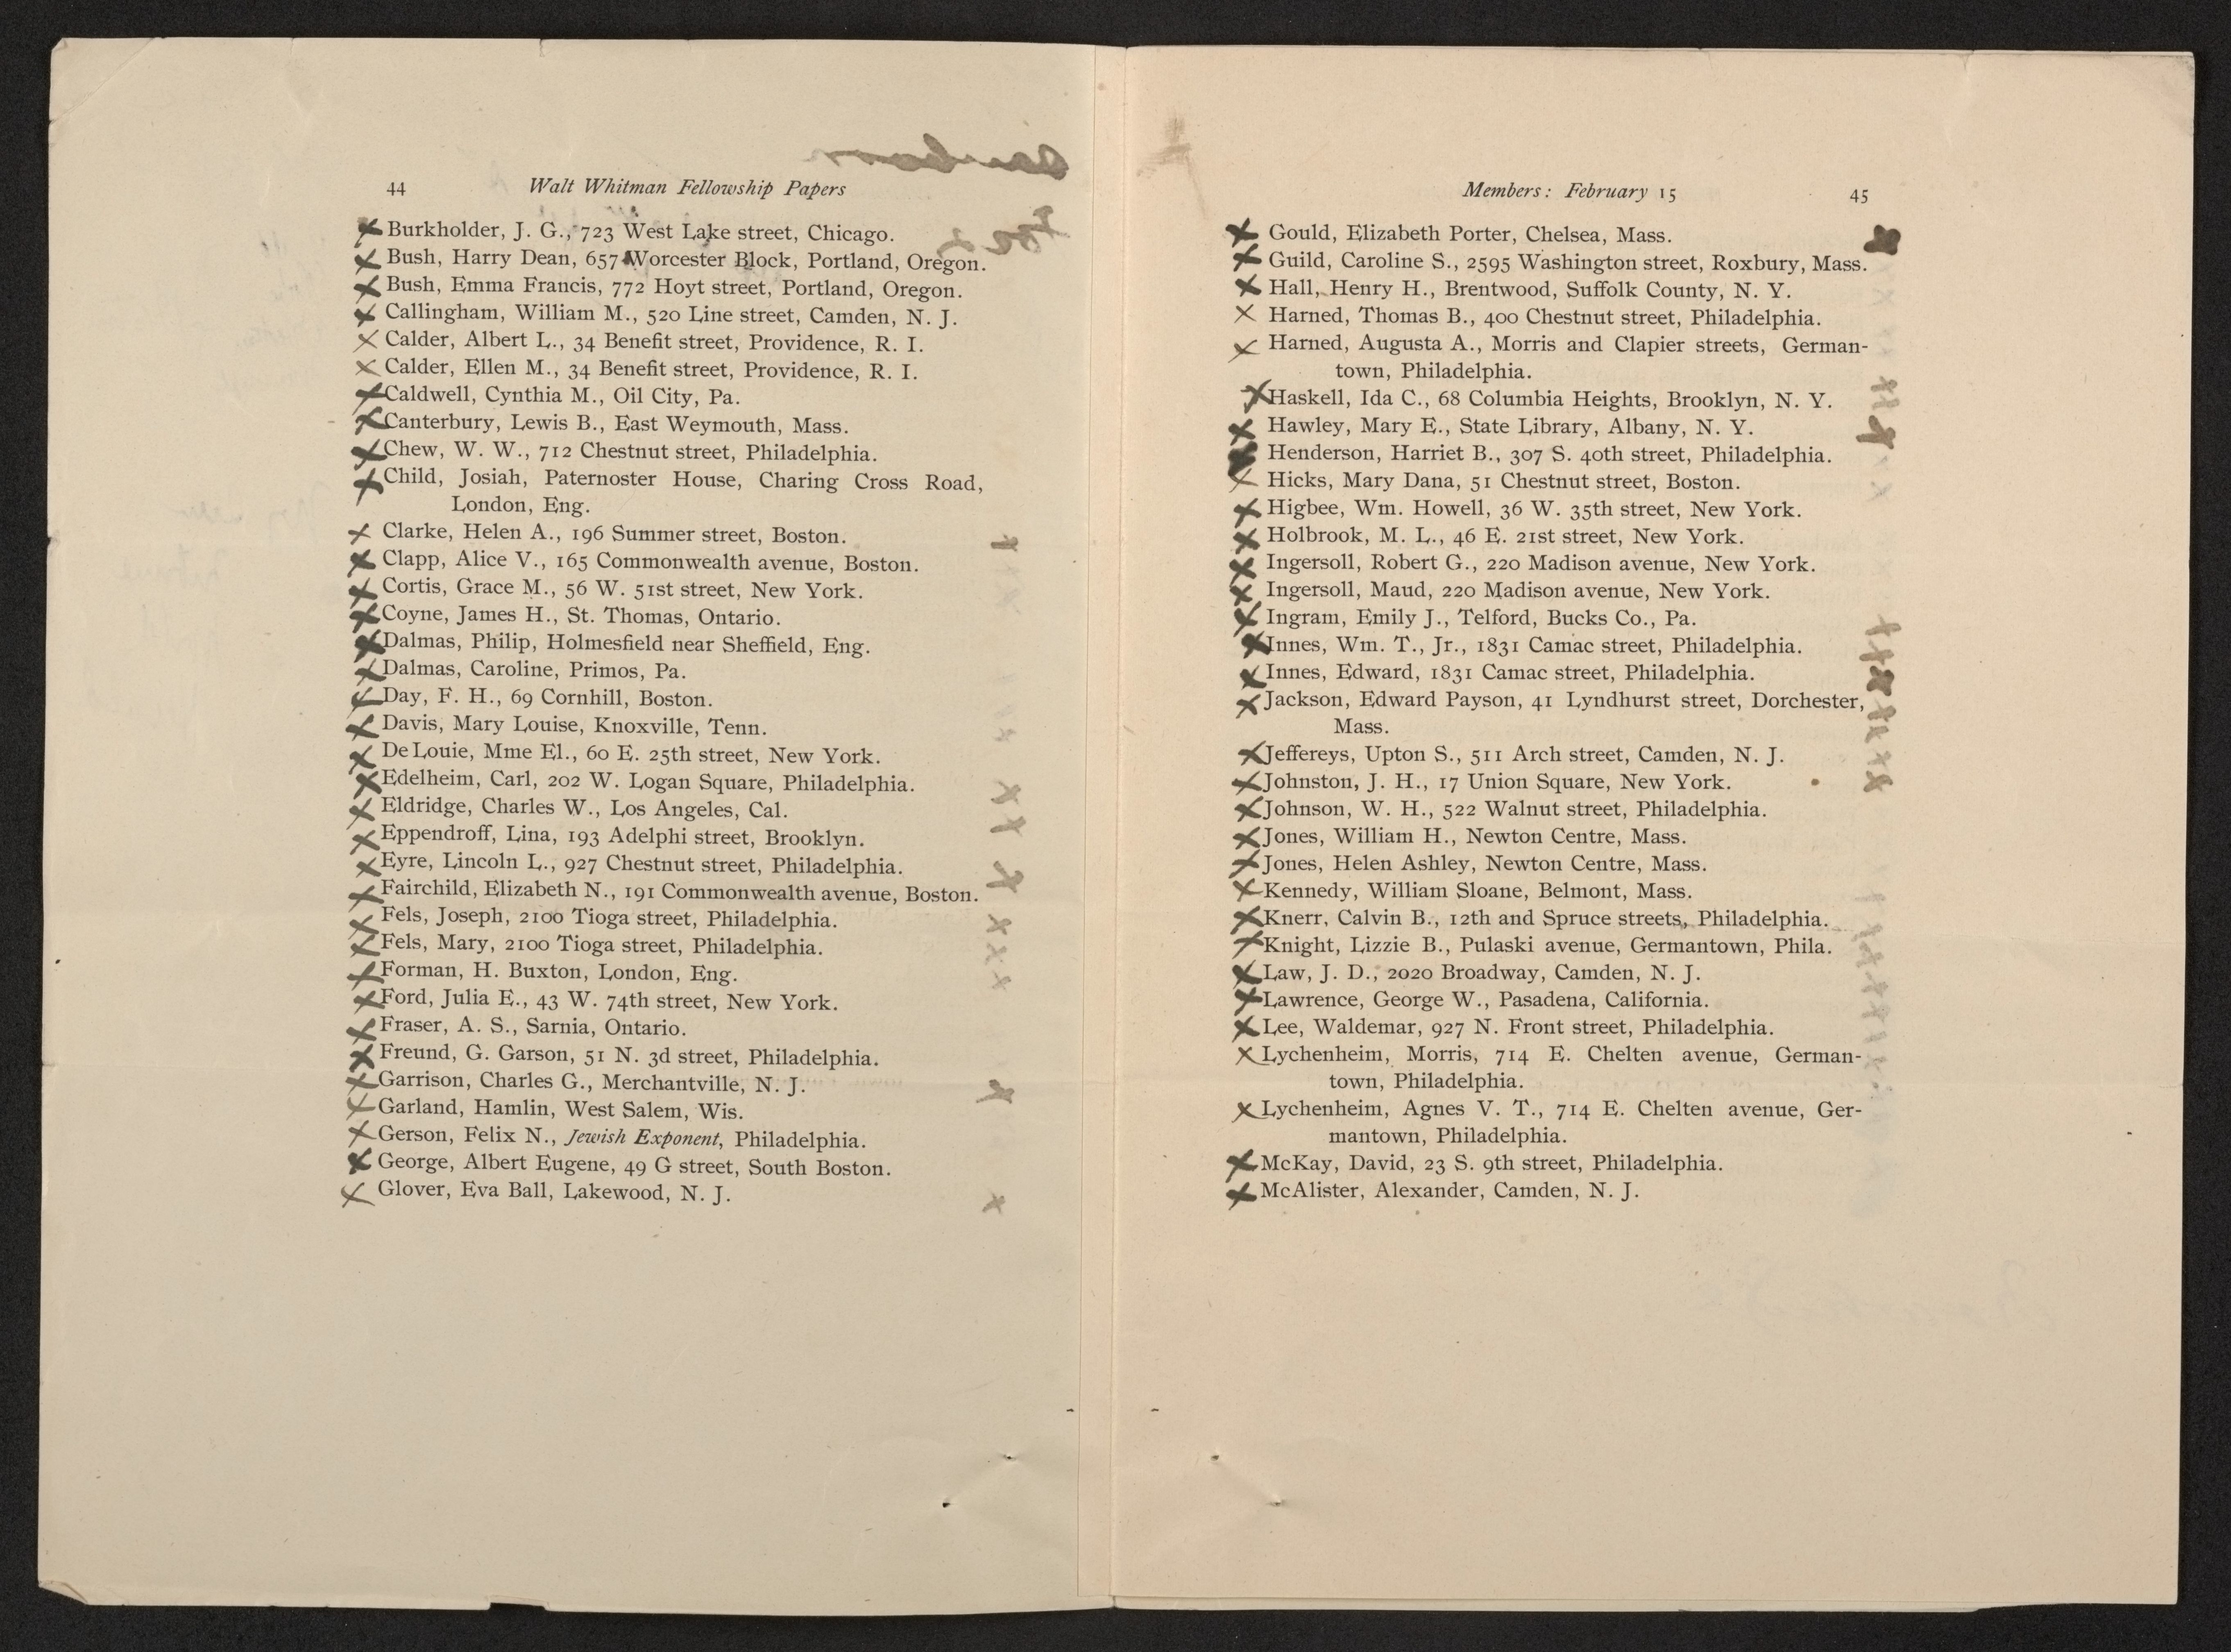 44 Walt Whitman Fellowship Papers
Burkholder, J. G., 723 West Lake street, Chicago.
Bush, Harry Dean, 657 Worcester Block, Portland, Oregon.
Bush, Emma Francis, 772 Hoyt street, Portland, Oregon.
Callingham, William M., 520 Line street, Camden, N. J.
Calder, Albert L., 34 Benefit street, Providence, R. I.
Calder, Ellen M., 34 Benefit street, Providence, R. I.
Caldwell, Cynthia M., Oil City, Pa.
Canterbury, Lewis B., East Weymouth, Mass.
Chew, W. W., 712 Chestnut street, Philadelphia.
Child, Josiah, Paternoster House, Charing Cross Road,
London, Eng.
Clarke, Helen A., 196 Summer street, Boston.
Clapp, Alice V., 165 Commonwealth avenue, Boston.
Cortis, Grace M., 56 W. 51st street, New York.
Coyne, James H., St. Thomas, Ontario.
Dalmas, Philip, Holmesfield near Sheffield, Eng.
Dalmas, Caroline, Primos, Pa.
Day, F. H., 69 Cornhill, Boston.
Davis, Mary Louise, Knoxville, Tenn.
De Louie, Mme El., 60 E. 25th street, New York.
Edelheim, Carl, 202 W. Logan Square, Philadelphia.
Eldridge, Charles W., Los Angeles, Cal.
Eppendroff, Lina, 193 Adelphi street, Brooklyn.
Eyre, Lincoln L., 927 Chestnut street, Philadelphia.
Fairchild, Elizabeth N., 191 Commonwealth avenue, Boston.
Fels, Joseph, 2100 Tioga street, Philadelphia.
Fels, Mary, 2100 Tioga street, Philadelphia.
Forman, H. Buxton, London, Eng.
Ford, Julia E., 43 W. 74th street, New York.
Fraser, A. S., Sarnia, Ontario.
Freund, G. Garson, 51 N. 3d street, Philadelphia.
Garrison, Charles G., Merchantville, N. J.
Garland, Hamlin, West Salem, Wis.
Gerson, Felix N., Jewish Exponent, Philadelphia.
George, Albert Eugene, 49 G street, South Boston.
Glover, Eva Ball, Lakewood, N. J.
Members: February 15 45
Gould, Elizabeth Porter, Chelsea, Mass.
Guild, Caroline S., 2595 Washington street, Roxbury, Mass.
Hall, Henry H., Brentwood, Suffolk County, N. Y.
Harned, Thomas B., 400 Chestnut street, Philadelphia.
Harned, Augusta A., Morris and Clapier streets, German-
town, Philadelphia.
Haskell, Ida C., 68 Columbia Heights, Brooklyn, N. Y.
Hawley, Mary E., State Library, Albany, N. Y.
Henderson, Harriet B., 307 S. 40th street, Philadelphia.
Hicks, Mary Dana, 51 Chestnut street, Boston.
Higbee, Wm. Howell, 36 W. 35th street, New York.
Holbrook, M. L., 46 E. 21st street, New York.
Ingersoll, Robert G., 220 Madison avenue, New York.
Ingersoll, Maud, 220 Madison avenue, New York.
Ingram, Emily J., Telford, Bucks Co., Pa.
Innes, Wm. T., Jr., 1831 Camac street, Philadelphia.
Innes, Edward, 1831 Camac street, Philadelphia.
Jackson, Edward Payson, 41 Lyndhurst street, Dorchester,
Mass.
Jeffereys, Upton S., 511 Arch street, Camden, N. J.
Johnston, J. H., 17 Union Square, New York.
Johnson, W. H., 522 Walnut street, Philadelphia.
Jones, William H., Newton Centre, Mass.
Jones, Helen Ashley, Newton Centre, Mass.
Kennedy, William Sloane, Belmont, Mass.
Knerr, Calvin B., 12th and Spruce streets, Philadelphia.
Knight, Lizzie B., Pulaski avenue, Germantown, Phila.
Law, J. D., 2020 Broadway, Camden, N. J.
Lawrence, George W., Pasadena, California.
Lee, Waldemar, 927 N. Front street, Philadelphia.
Lychenheim, Morris, 714 E. Chelten avenue, German-
town, Philadelphia.
Lychenheim, Agnes V. T., 714 E. Chelten avenue, Ger-
mantown, Philadelphia.
McKay, David, 23 S. 9th street, Philadelphia.
McAlister, Alexander, Camden, N. J.